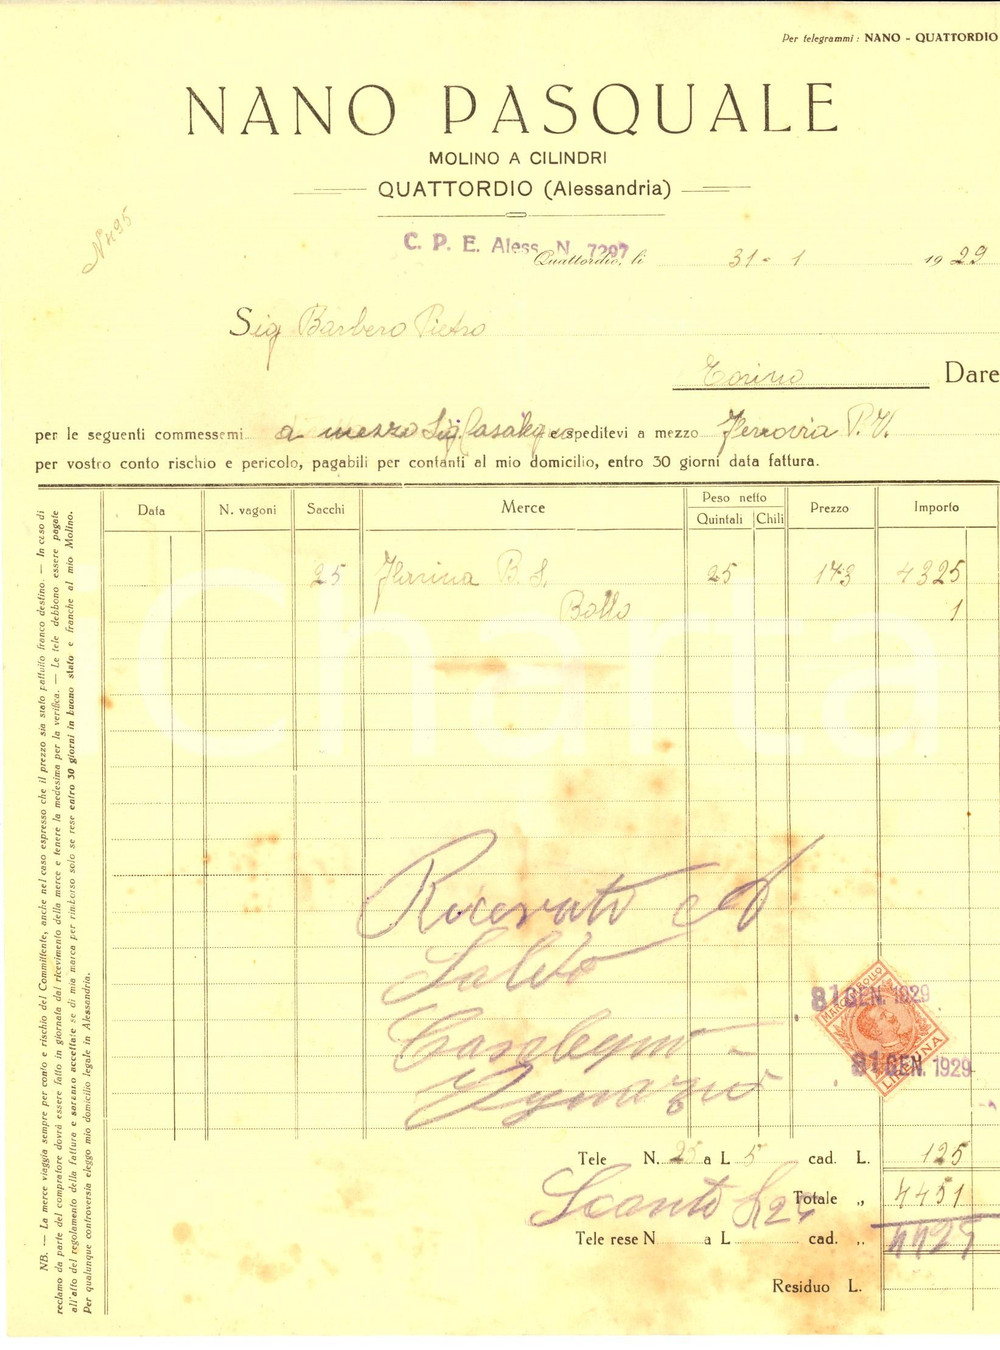 Per telegrammi: NANO - QUATTORDIO
NANO PASQUALE
MOLINO A CILINDRI
QUATTORDIO (Alessandria)
N 495
C. P. E. Aless. N. 7297
Quattordio, li 31 - 1 1929
Sig Barbero Pietro
Torino Dare
per le seguenti commessemi a mezzo Sig. Casalegno e speditevi a mezzo Ferrovia P.V.
per vostro conto rischio e pericolo, pagabili per contanti al mio domicilio, entro 30 giorni data fattura.
Data N. vagoni Sacchi Merce Peso netto Prezzo Importo
Quintali Chili
25 Farina B. S. 25 173 4325
Bollo 1
Ricevuto a
Saldo
Casalegno
MARCA DA BOLLO
LIRE UNA
31 GEN. 1929
31 GEN. 1929
Tele N. 25 a L 5 cad. L. 125
Totale „ 4451
Sconto L 26
4425
Tele rese N a L cad. „
Residuo L.
NB. — La merce viaggia sempre per conto e rischio del Committente, anche nel caso espresso che il prezzo sia stato pattuito franco destino. — In caso di
reclamo da parte del compratore dovrà essere fatto in giornata dal ricevimento della merce e tenere la medesima per la verifica. — Le tele debbono essere pagate
all'atto del regolamento della fattura e saranno accettate se di mia marca per rimborso solo se rese entro 30 giorni in buono stato e franche al mio Molino.
Per qualunque controversia eleggo mio domicilio legale in Alessandria.